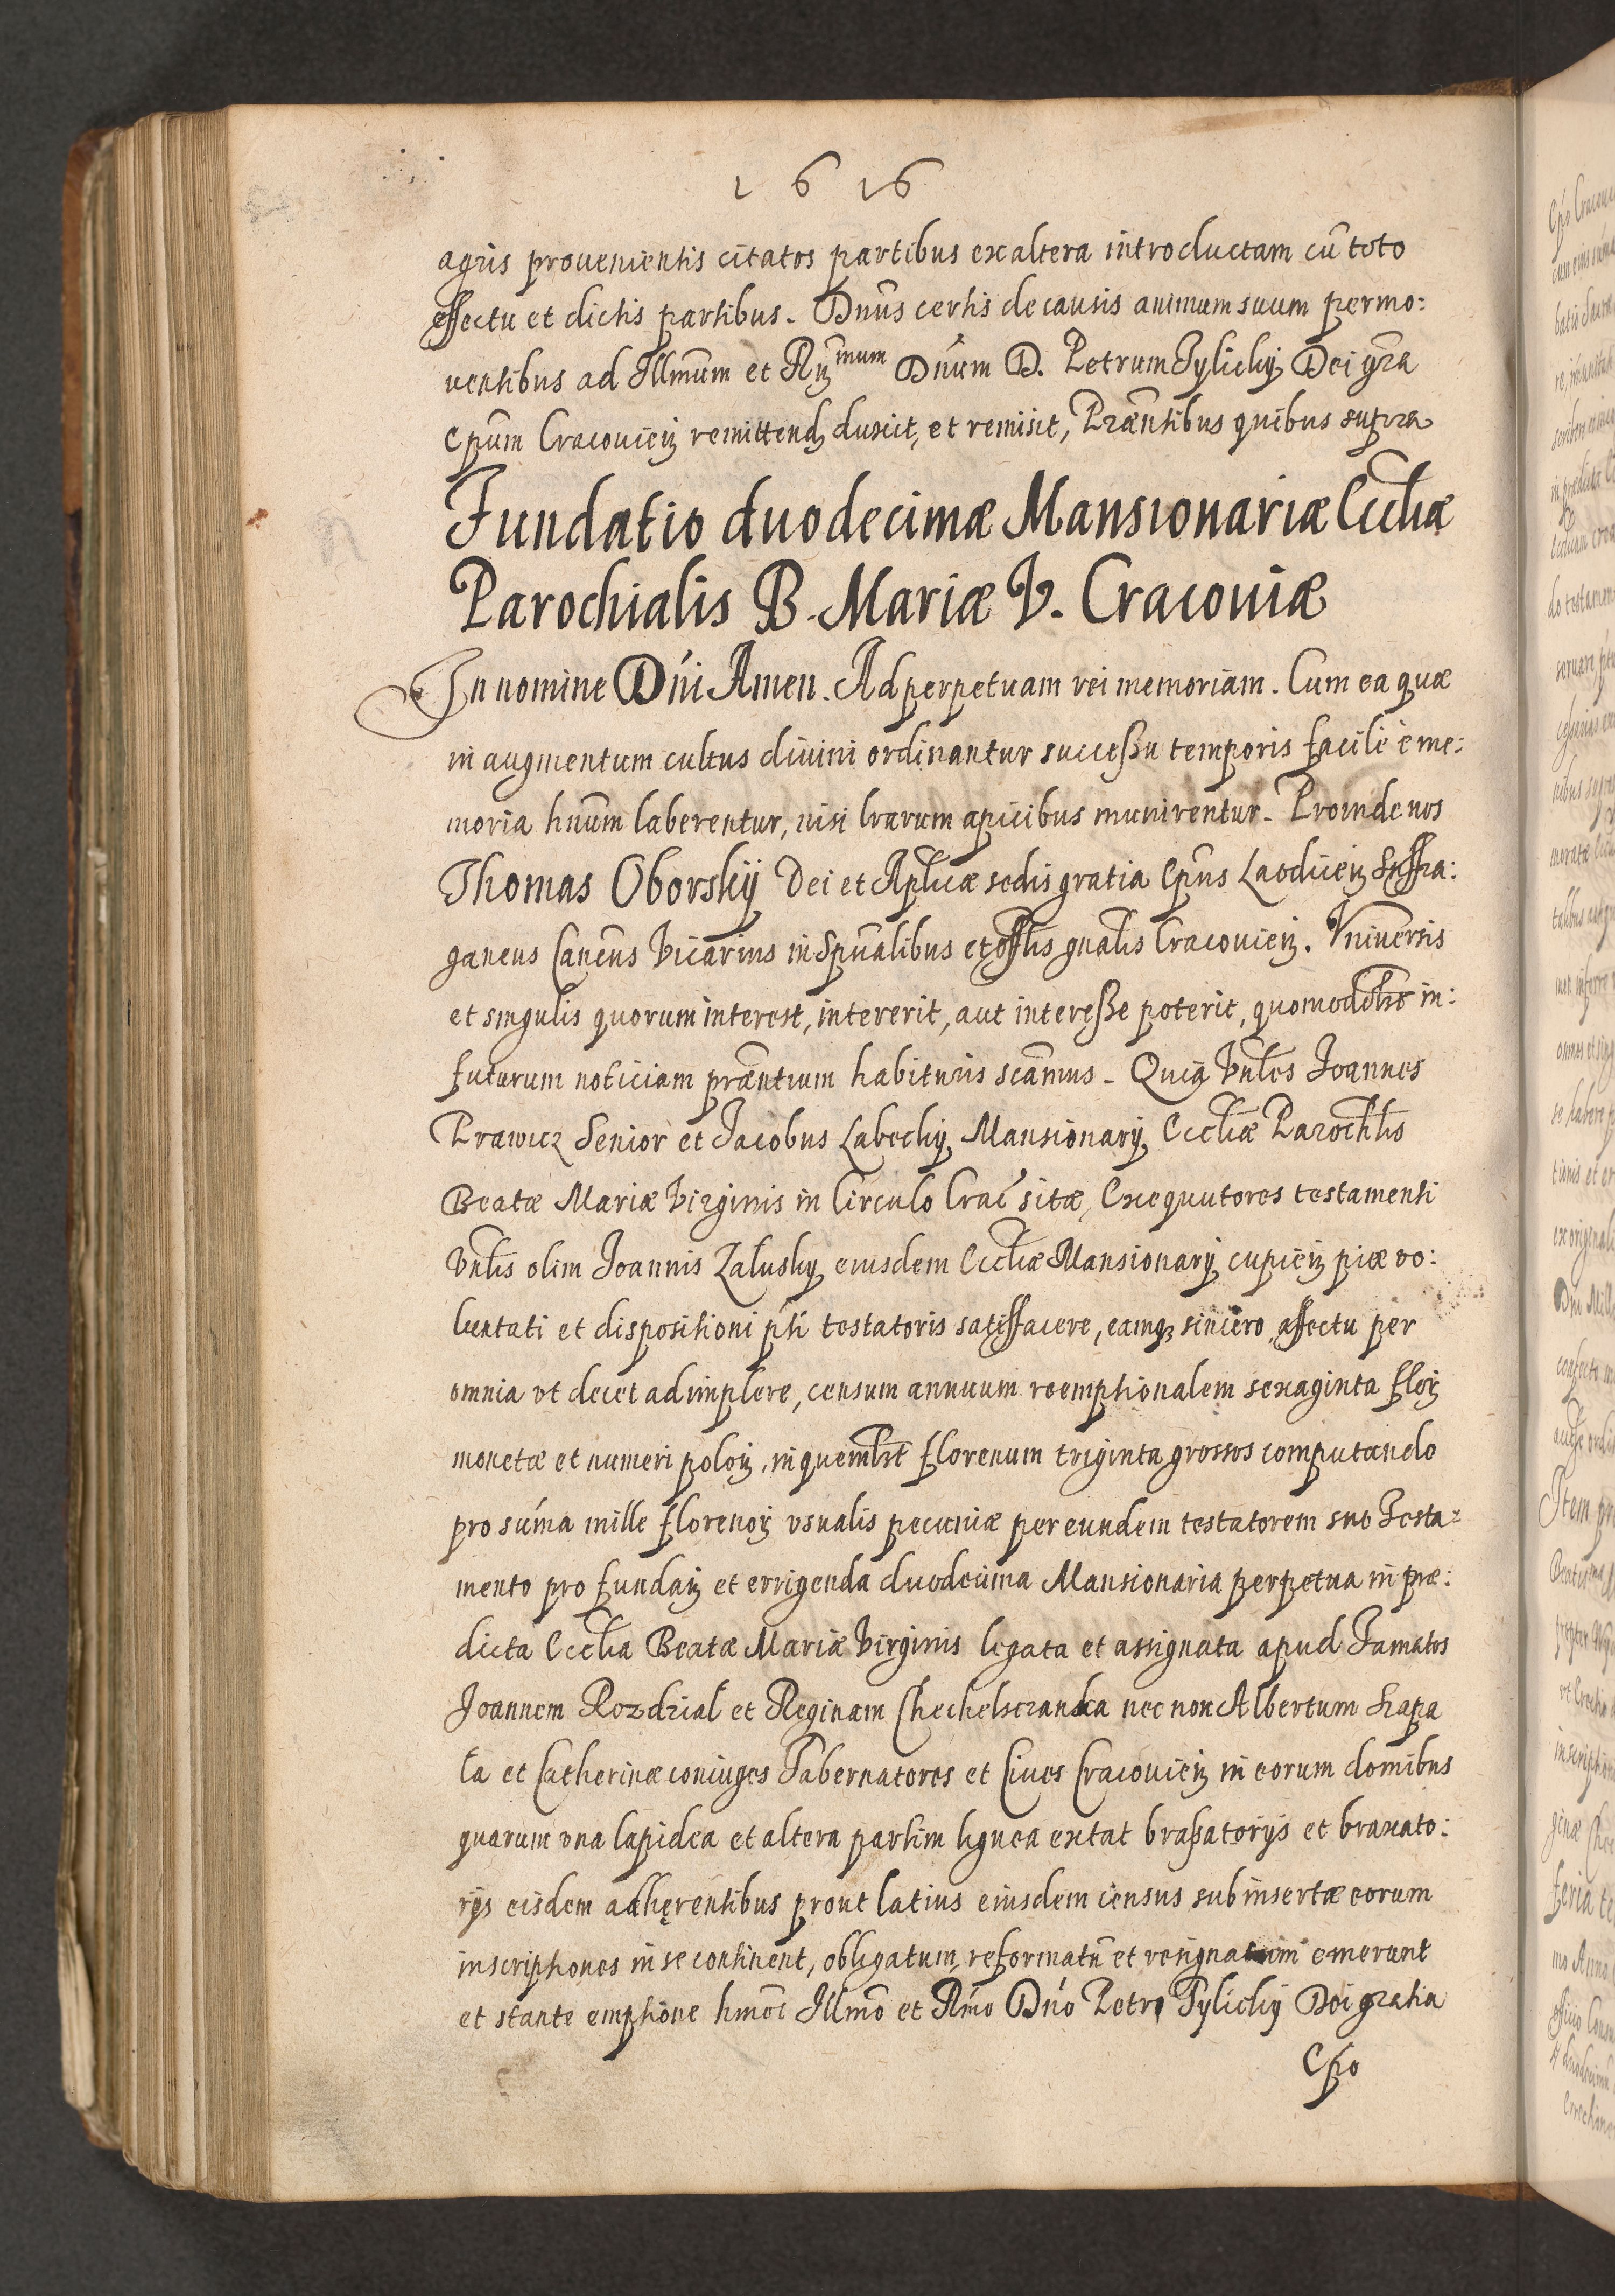 1616
agris prouenientis citatos partibus ex altera introductam cū toto
effectu et dictis partibus. Dnūs certis de causis animum suum permo:
uentibus ad Illmūm et Rꝫmum Dnūm D. Petrum Tylicky Dei gr̄a
Epūm Cracouieñ remittendꝫ duxit, et remisit, Præntibus quibus supra
Fundatio duodecimæ Mansionariæ Eccliæ
Parochialis B. Mariæ V. Cracouiæ
In nomine Dńi Amen. Ad perpetuam rei memoriam. Cum ea quæ
in augmentum cultus diuini ordinantur succeßu temporis facilè è me:
moria hnūm laberentur, nisi lrarum apicibus munirentur. Proinde nos
Thomas Oborskÿ Dei et Aplicæ sedis gratia Epūs Laodiceñ Suffra:
ganeus Cancūs Vicarius in Spūalibus et offlis gnalis Cracouieñ. Vniuersis
et singulis quorum interest, intererit, aut intereße poterit, quomodolbt in:
futurum noticiam præntium habituris scāmus. Quia Vnbles Joannes
Prawicz Senior et Jacobus Labecky Mansionarÿ Eccliæ Parochlis
Beatæ Mariæ Virginis in Circulo Crac̄ sitæ, Exequutores testamenti
Vnblis olim Joannis Zalusky eiusdem Eccliæ Mansionarÿ cupieñ piæ vo:
luntati et dispositioni pti testatoris satiffacere, eamqꝫ sincero affectu per
omnia vt decet adimplere, censum annuum reemptionalem sexaginta floꝝ
monetæ et numeri poloꝝ, in quemlbt florenum triginta grossos computando
pro sum̄a mille florenoꝝ vsualis pecuniæ per eundem testatorem suo Testa:
mento pro fundañ et errigenda duodecima Mansionaria perpetua in præ:
dicta Ecclia Beatæ Mariæ Virginis legata et assignata apud Famatos
Joannem Rozdzial et Reginam Chechelscranka nec non Albertum Szapa
ta et Catherinæ coniuges Tabernatores et Ciues Cracouieñ in eorum domibus
quarum vna lapidea et altera partim lignea extat braßatorÿs et braxato:
rÿs eisdem adhęrentibus prout latius eiusdem census sub insertæ eorum
inscriptiones in se continent, obligatum, reformatū et resignatum emerunt
et stante emptione hmōi Illmō et Rm̄o Dn̄o Petro Tylicky Dei gratia
Epo